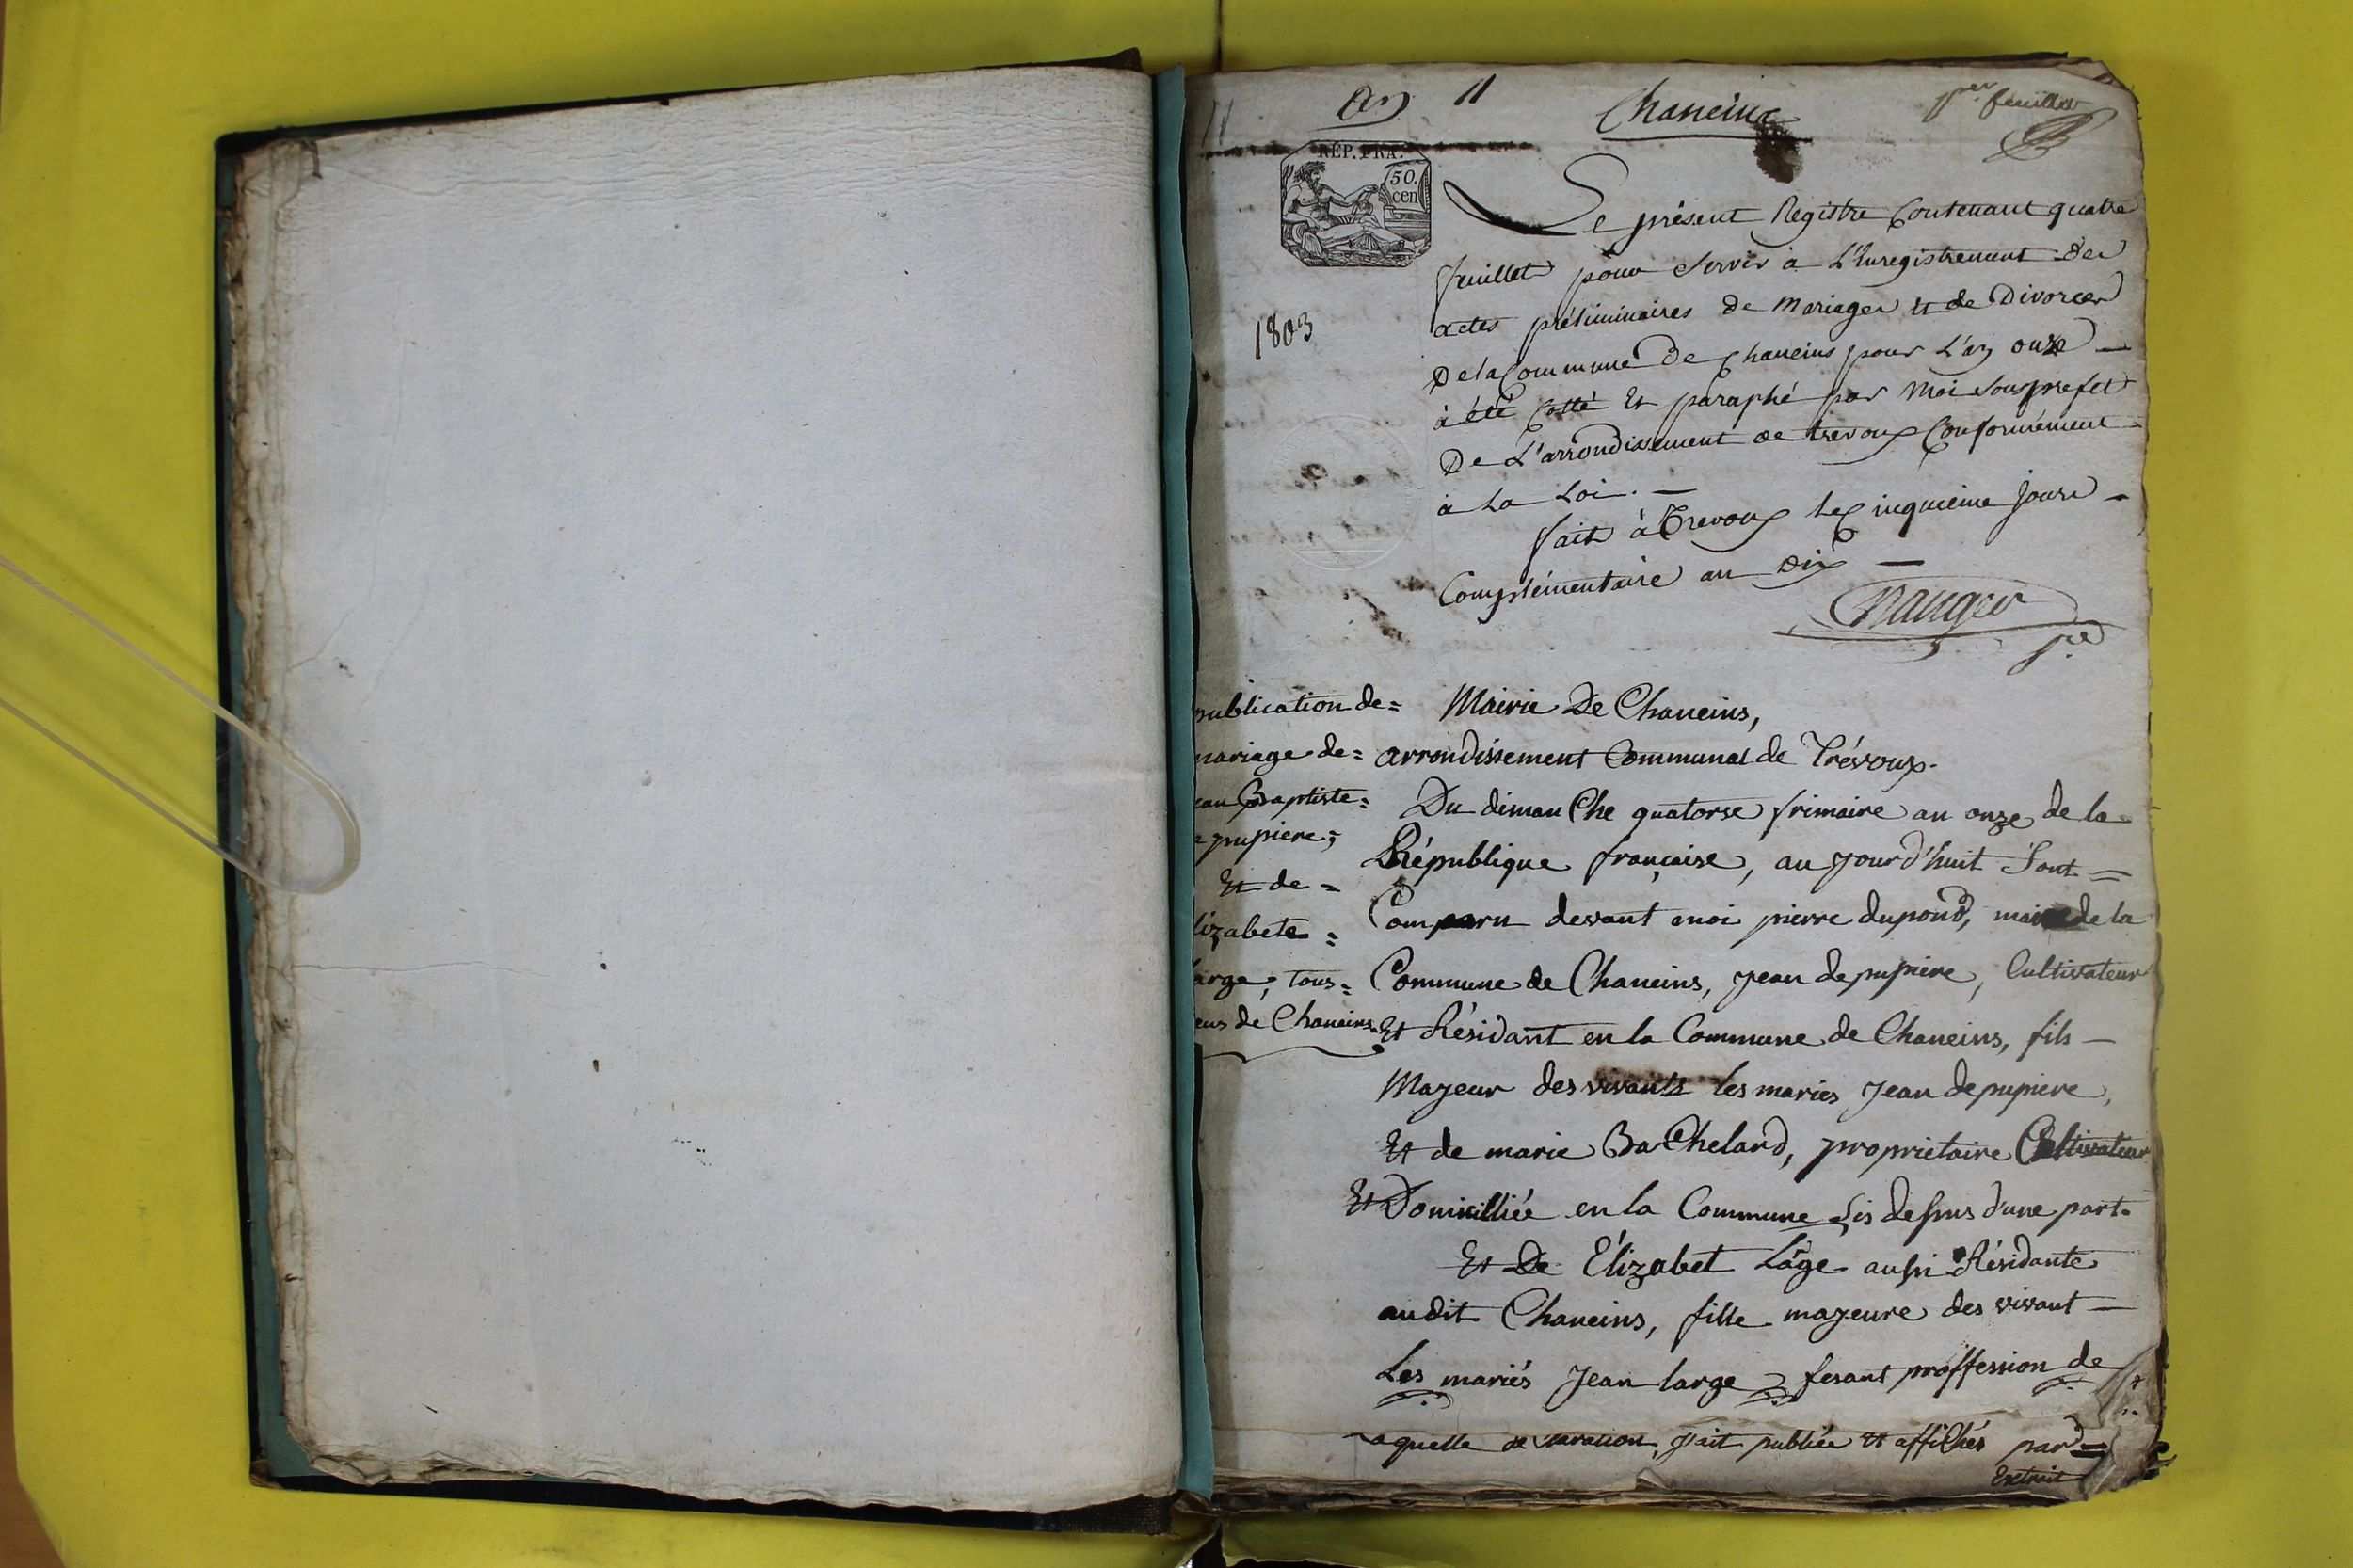 An 11
Chaneins
1er feuillet
REP. FRA.
50.
cen
Le présent Registre Contenant quatre
feuillet pour Servir à L'Enregistrement des
actes préliminaires de Mariages et de Divorces
De la Commune De Chaneins pour L'an onze —
à été Cotté Et paraphé par Moi Sousprefet
De L'arrondissement de trevoux Conformément
à la Loi. —
fait à Trevoux le Cinquieme Jour
Complémentaire an Dix —
1803
publication de =
mariage de =
ean Baptiste =
pupiere =
Et de =
lizabete =
arge, tous =
de Chaneins.
Mairie De Chaneins,
arrondissement Communal de Trévoux.
Du dimanChe quatorse frimaire an onze de la
République française, aujourd'huit Sont =
Comparu devant moi pierre dupond, maire de la
Commune de Chaneins, jean depupiere, Cultivateur
Et Résidant en la Commune de Chaneins, fils —
Majeur des vivants les mariés Jean depupiere,
Et de marie BaChelard, propriétaire Cultivateur
Et Domicilliée en la Commune Sis dessus d'une part.
Et De Élizabet Lârge aussi Résidante
audit Chaneins, fille majeure des vivant —
Les mariés Jean large fesant proffession de
aquelle declaration, fait publiée et affiChés par =
Extrait